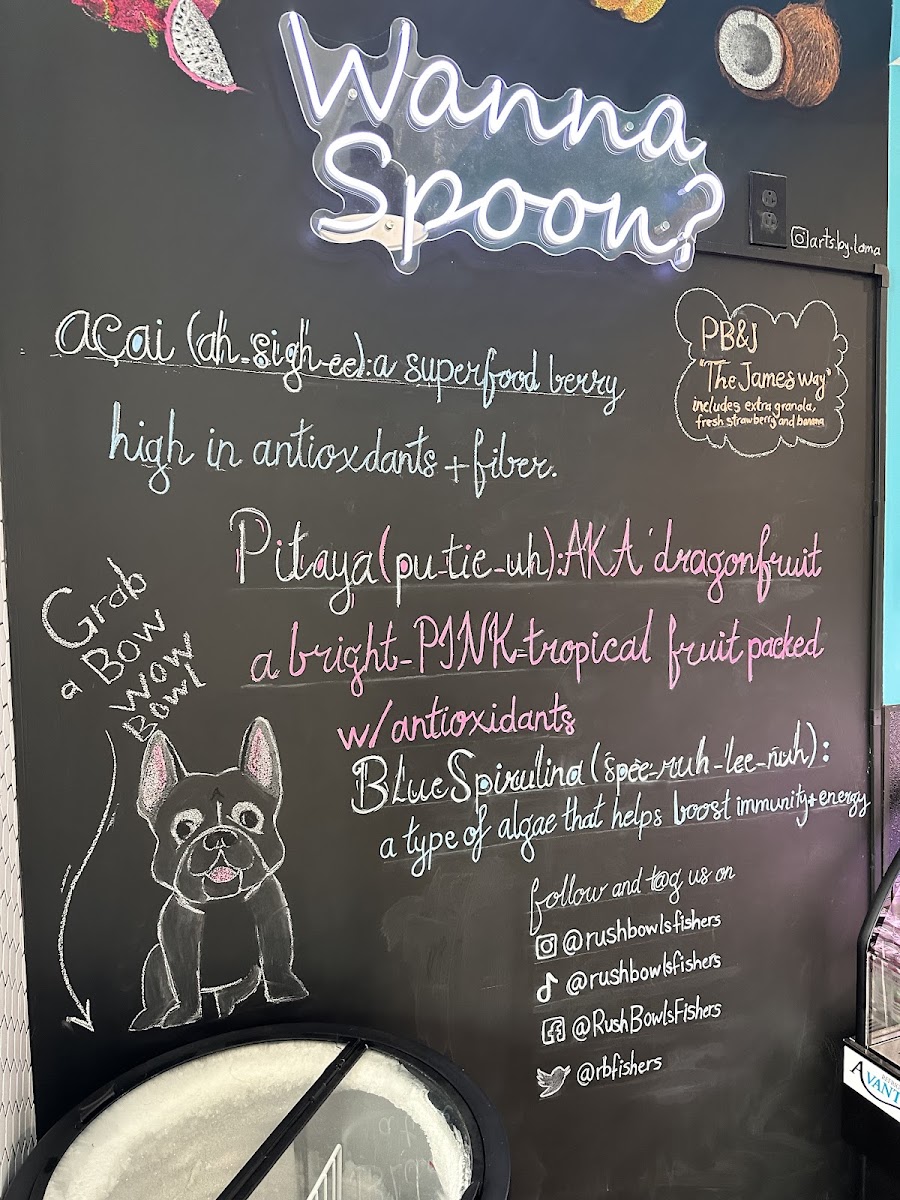 Wanna
Spoon?
arts.by.lama
açai (ah-sigh-ee):a superfood berry
high in antioxdants + fiber.
PB&J
"The James way"
includes extra granola,
fresh strawberry and banana
Pitaya (pu-tie-uh): AKA dragonfruit
a bright-PINK-tropical fruit packed
w/antioxidants
Grab
a Bow
Wow
Bowl
Blue Spirulina (spee-ruh-lee-nuh):
a type of algae that helps boost immunity+energy
follow and t@g us on
@rushbowlsfishers
@rushbowlsfishers
@RushBowlsFishers
@rbfishers